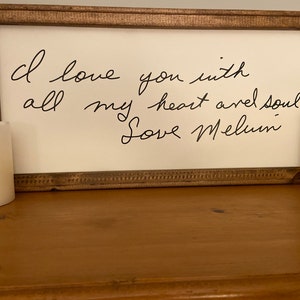 I love you with
all my heart and soul
Love Melvin